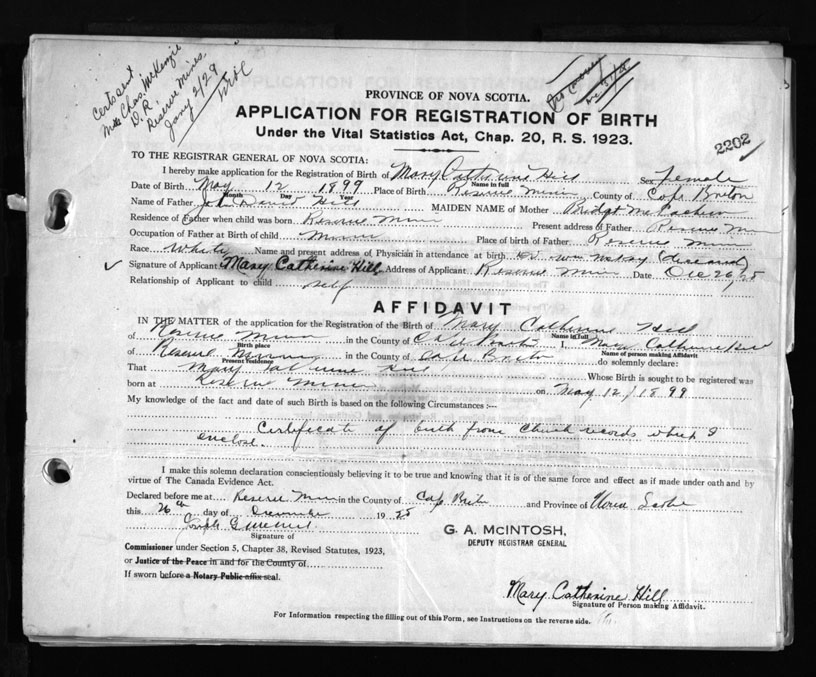 Certs sent
Mrs Chas. McKenzie
D.R
Reserve Mines
Jany 2/29
PROVINCE OF NOVA SCOTIA.
APPLICATION FOR REGISTRATION OF BIRTH
Under the Vital Statistics Act, Chap. 20, R. S. 1923.
2202
TO THE REGISTRAR GENERAL OF NOVA SCOTIA:
I hereby make application for the Registration of Birth of Mary Catherine Hill Sex female
Name in full
Date of Birth May 12 1899 Place of Birth Reserve Mines County of Cape Breton
Month Day Year
Name of Father John David Hill MAIDEN NAME of Mother Bridget McEachern
Residence of Father when child was born Reserve Mines Present address of Father Reserve Mines
Occupation of Father at Birth of child Miner Place of birth of Father Reserve Mines
Race White Name and present address of Physician in attendance at birth Wm McKay (deceased)
Signature of Applicant Mary Catherine Hill Address of Applicant Reserve Mines Date Dec 26/25
Relationship of Applicant to child self
AFFIDAVIT
IN THE MATTER of the application for the Registration of the Birth of Mary Catherine Hill
Name in full
of Reserve Mines in the County of Cape Breton I, Mary Catherine Hill
Birth place Name of person making Affidavit
of Reserve Mines in the County of Cape Breton do solemnly declare:
Present residence
That Mary Catherine Hill Whose Birth is sought to be registered was
born at Reserve Mines on May 12/1899
My knowledge of the fact and date of such Birth is based on the following Circumstances :—
Certificate of birth from Church records which I
enclose.
I make this solemn declaration conscientiously believing it to be true and knowing that it is of the same force and effect as if made under oath and by
virtue of The Canada Evidence Act.
Declared before me at Reserve Mines in the County of Cape Breton and Province of Nova Scotia
this 26th day of December 1925
Signature of
G. A. McINTOSH,
DEPUTY REGISTRAR GENERAL
Commissioner under Section 5, Chapter 38, Revised Statutes, 1923,
or Justice of the Peace in and for the County of
If sworn before a Notary Public affix seal.
Mary Catherine Hill
Signature of Person making Affidavit.
For Information respecting the filling out of this Form, see Instructions on the reverse side.